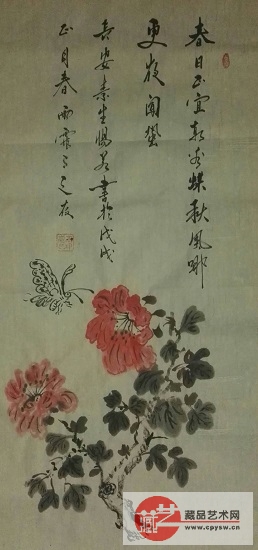 春日正宜蝶秋風哪
更夜闻蛩
長安素生書於戊戌
正月春雨霏々之夜
藏品艺术网
www.cpysw.cn